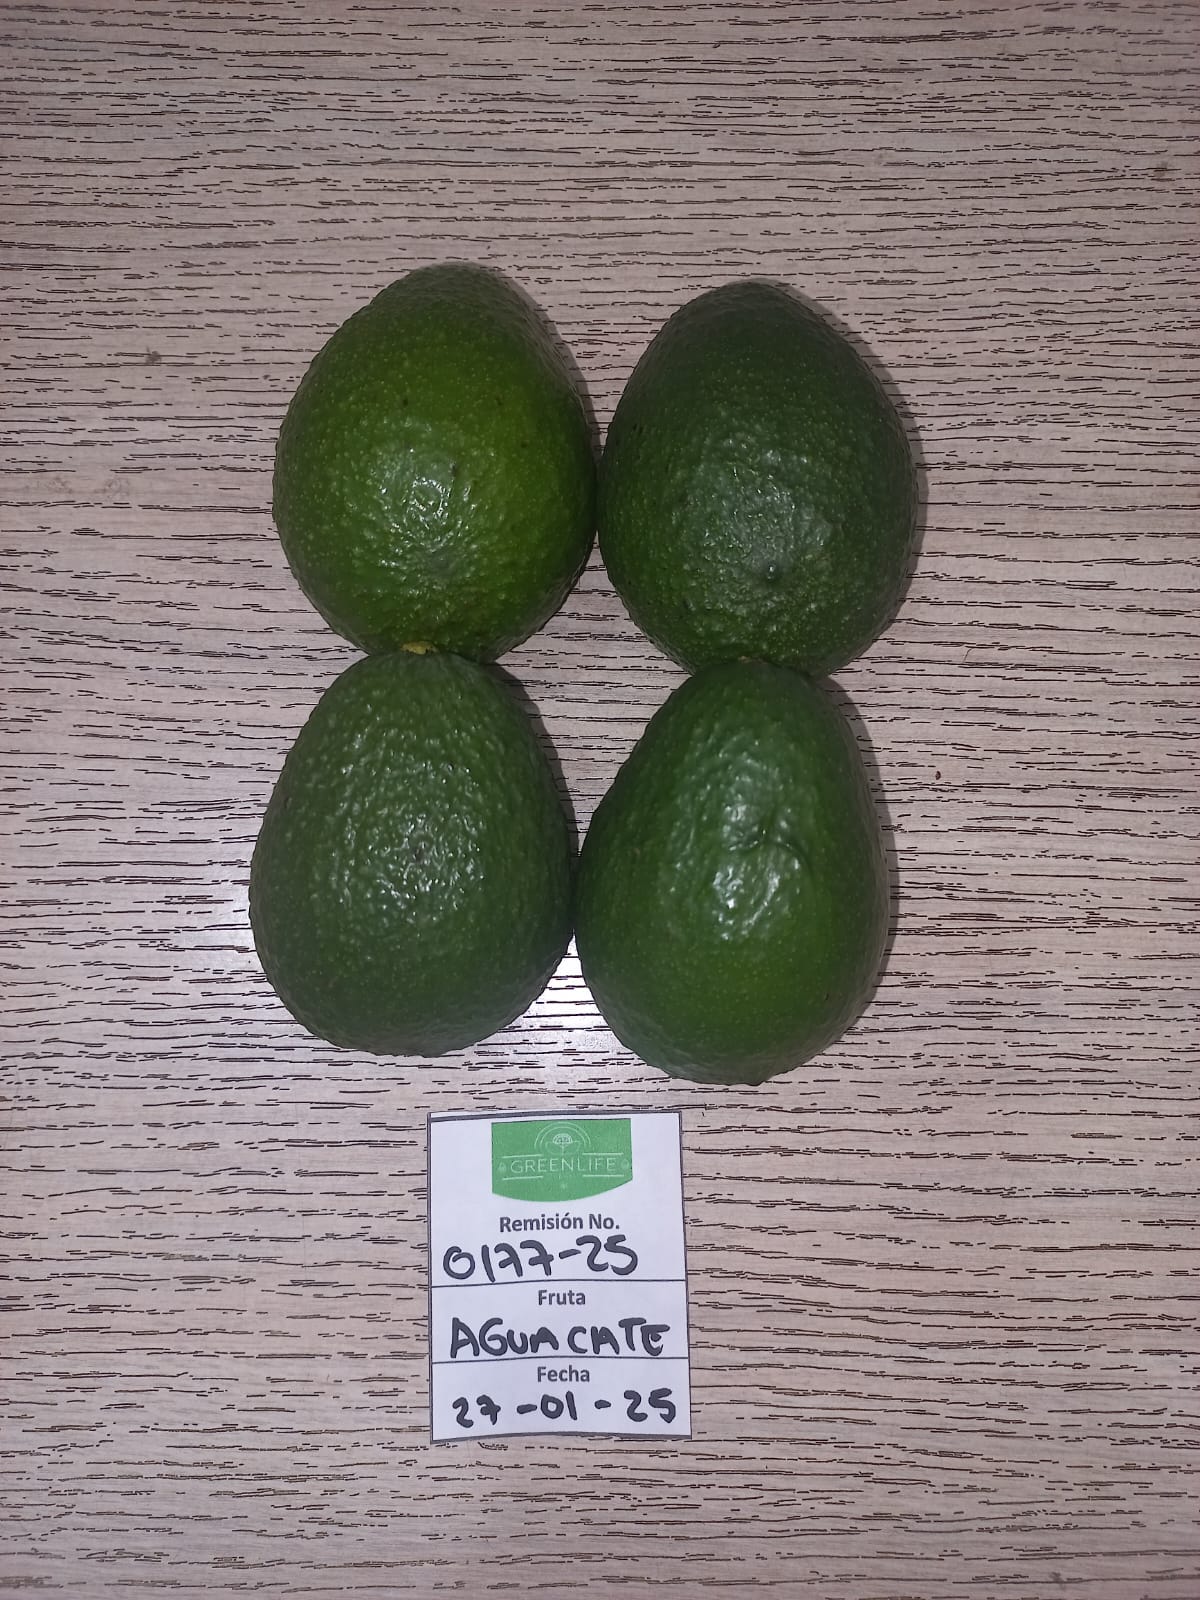 GREENLIFE
Remisión No.
0177-25
Fruta
AGUACATE
Fecha
27-01-25